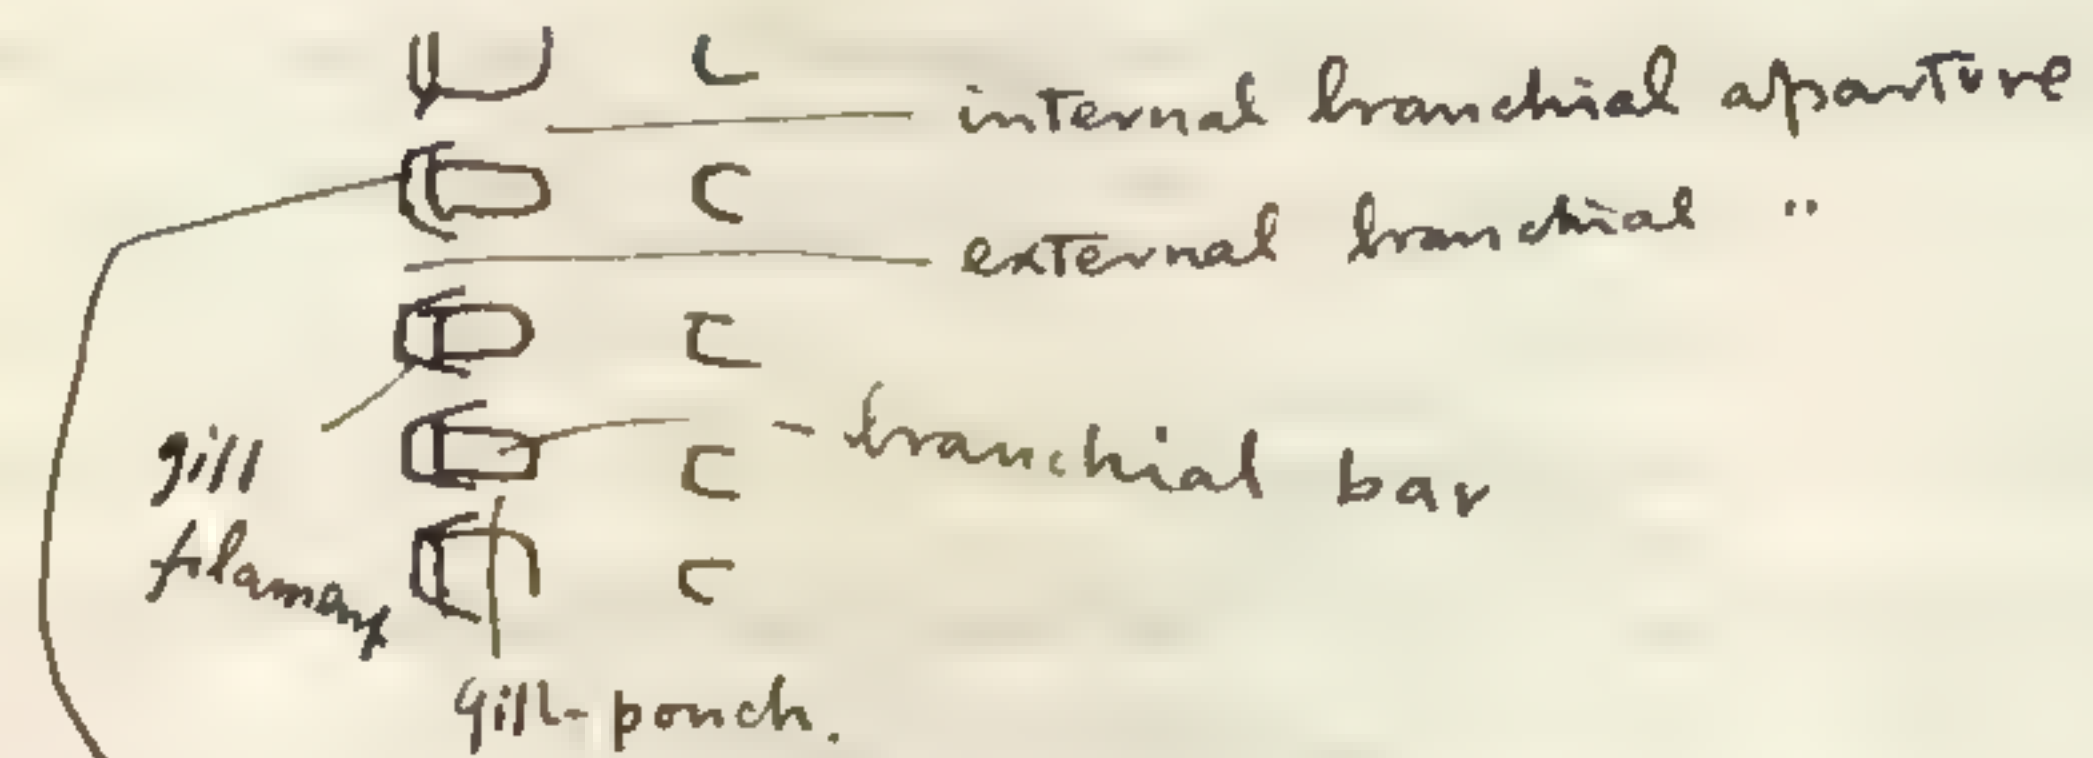 internal branchial aparture
external branchial "
branchial bar
gill
filament
gill-pouch.